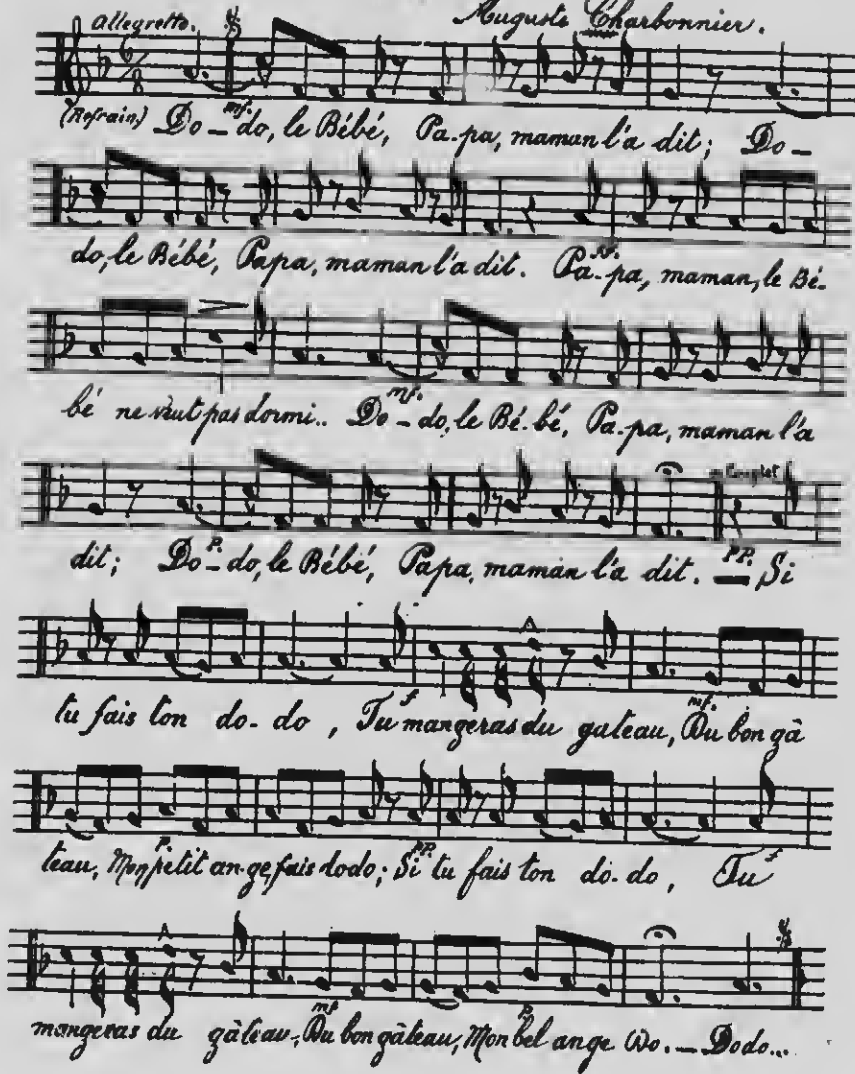 Allegretto. Auguste Charbonnier.
6/8
mf.
(Refrain) Do - do, le Bébé, Pa-pa, maman l'a dit; Do -
do, le Bébé, Papa, maman l'a dit. Pa-pa, maman, le Bé-
bé ne veut pas dormi.. Do - do, le Bé-bé, Pa-pa, maman l'a
mf.
Couplet
dit; Do - do, le Bébé, Papa, maman l'a dit. — Si
p. PP.
tu fais ton do-do, Tu mangeras du gateau, Du bon gâ
f mf.
teau, Mon petit an-ge, fais dodo; Si tu fais ton do-do, Tu
p. PP. f
mangeras du gâteau, Du bon gâteau, Mon bel ange Do. — Dodo...
mf p.